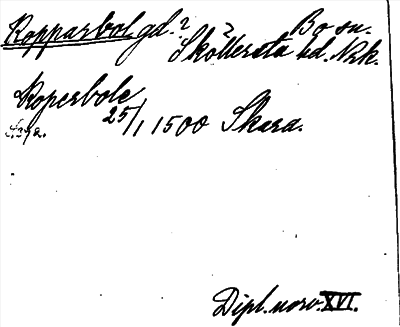 Kopparbol gd.? Bo sn.
Sköllersta hd. Nrk.
Koperbole
25/1 1500 Skara.
Dipl. norv. XVI.